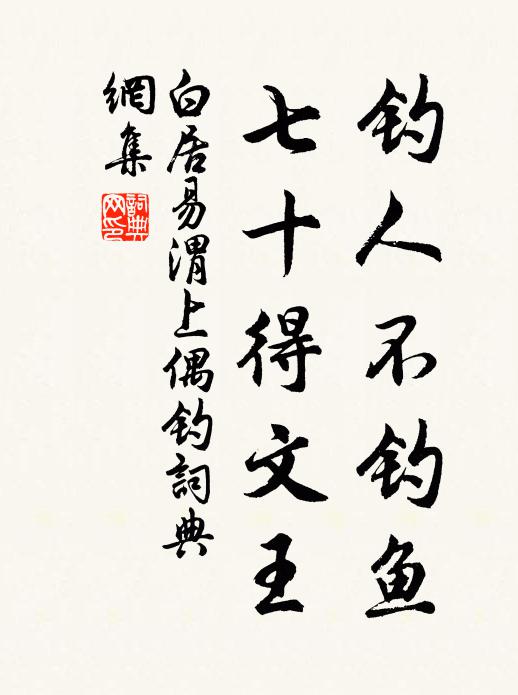 钓人不钓鱼
七十得文王
白居易渭上偶钓詞典
網集
詞典
网印